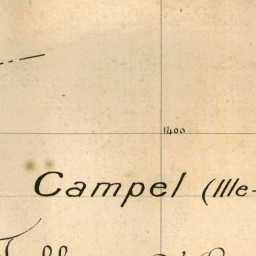 1400
Campel (Ille-